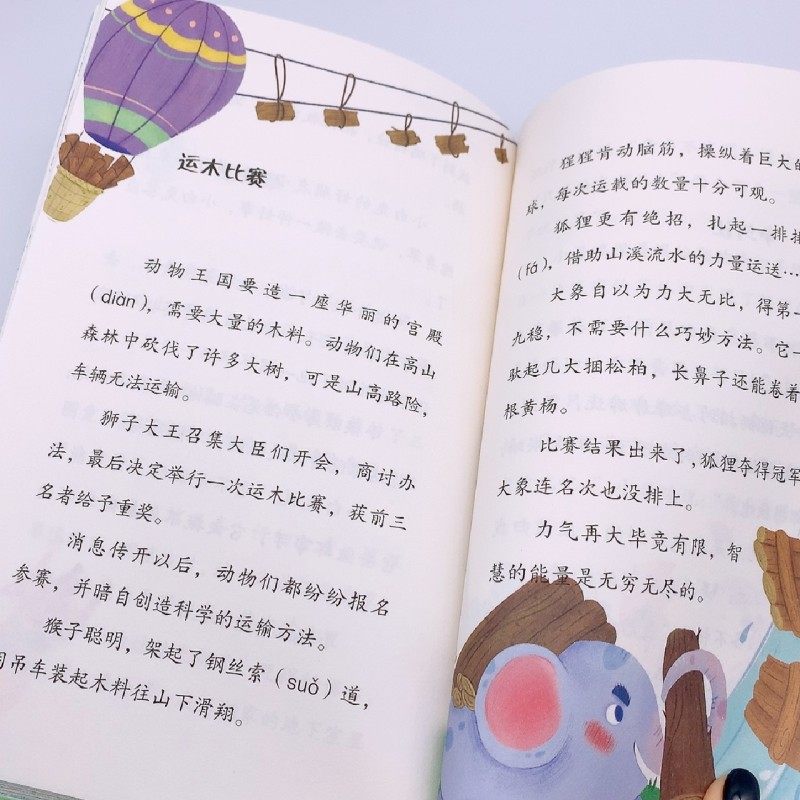 运木比赛
动物王国要造一座华丽的宫殿
(diàn)，需要大量的木料。动物们在高山
森林中砍伐了许多大树，可是山高路险，
车辆无法运输。
狮子大王召集大臣们开会，商讨办
法，最后决定举行一次运木比赛，获前三
名者给予重奖。
消息传开以后，动物们都纷纷报名
参赛，并暗自创造科学的运输方法。
猴子聪明，架起了钢丝索(suǒ)道，
用吊车装起木料往山下滑翔。
猩猩肯动脑筋，操纵着巨大的
球，每次运载的数量十分可观。
狐狸更有绝招，扎起一排排
(fá)，借助山溪流水的力量运送…
大象自以为力大无比，得第一
九稳，不需要什么巧妙方法。它一
驮起几大捆松柏，长鼻子还能卷着
根黄杨。
比赛结果出来了，狐狸夺得冠军
大象连名次也没排上。
力气再大毕竟有限，智
慧的能量是无穷无尽的。